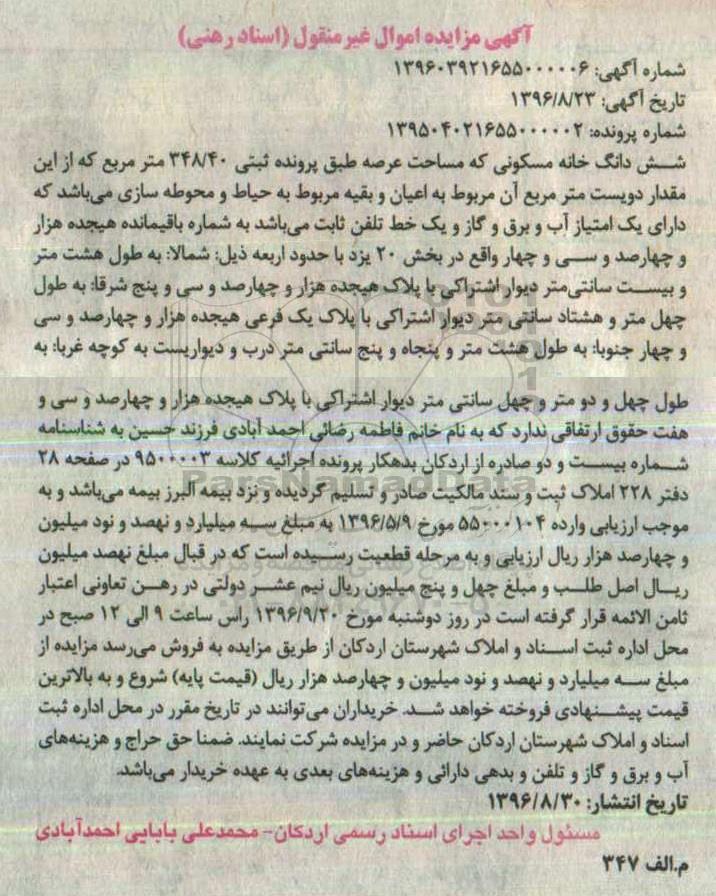 آگهی مزایده اموال غیرمنقول (اسناد رهنی)
شماره آگهی: ۱۳۹۶۰۳۹۲۱۶۵۵۰۰۰۰۰۶
تاریخ آگهی: ۱۳۹۶/۸/۲۳
شماره پرونده: ۱۳۹۵۰۴۰۲۱۶۵۵۰۰۰۰۰۲
شش دانگ خانه مسکونی که مساحت عرصه طبق پرونده ثبتی ۳۴۸/۴۰ متر مربع که از این
مقدار دویست متر مربع آن مربوط به اعیان و بقیه مربوط به حیاط و محوطه سازی می‌باشد که
دارای یک امتیاز آب و برق و گاز و یک خط تلفن ثابت می‌باشد به شماره باقیمانده هیجده هزار
و چهارصد و سی و چهار واقع در بخش ۲۰ یزد با حدود اربعه ذیل: شمالا: به طول هشت متر
و بیست سانتی‌متر دیوار اشتراکی با پلاک هیجده هزار و چهارصد و سی و پنج شرقا: به طول
چهل متر و هشتاد سانتی متر دیوار اشتراکی با پلاک یک فرعی هیجده هزار و چهارصد و سی
و چهار جنوبا: به طول هشت متر و پنجاه و پنج سانتی متر درب و دیواریست به کوچه غربا: به
طول چهل و دو متر و چهل سانتی متر دیوار اشتراکی با پلاک هیجده هزار و چهارصد و سی و
هفت حقوق ارتفاقی ندارد که به نام خانم فاطمه رضائی احمد آبادی فرزند حسین به شناسنامه
شماره بیست و دو صادره از اردکان بدهکار پرونده اجرائیه کلاسه ۹۵۰۰۰۰۳ در صفحه ۲۸
دفتر ۲۲۸ املاک ثبت و سند مالکیت صادر و تسلیم گردیده و نزد بیمه البرز بیمه می‌باشد و به
موجب ارزیابی وارده ۵۵۰۰۰۱۰۴ مورخ ۱۳۹۶/۵/۹ به مبلغ سه میلیارد و نهصد و نود میلیون
و چهارصد هزار ریال ارزیابی و به مرحله قطعیت رسیده است که در قبال مبلغ نهصد میلیون
ریال اصل طلب و مبلغ چهل و پنج میلیون ریال نیم عشر دولتی در رهن تعاونی اعتبار
ثامن الائمه قرار گرفته است در روز دوشنبه مورخ ۱۳۹۶/۹/۲۰ راس ساعت ۹ الی ۱۲ صبح در
محل اداره ثبت اسناد و املاک شهرستان اردکان از طریق مزایده به فروش می‌رسد مزایده از
مبلغ سه میلیارد و نهصد و نود میلیون و چهارصد هزار ریال (قیمت پایه) شروع و به بالاترین
قیمت پیشنهادی فروخته خواهد شد. خریداران می‌توانند در تاریخ مقرر در محل اداره ثبت
اسناد و املاک شهرستان اردکان حاضر و در مزایده شرکت نمایند. ضمنا حق حراج و هزینه‌های
آب و برق و گاز و تلفن و بدهی دارائی و هزینه‌های بعدی به عهده خریدار می‌باشد.
تاریخ انتشار: ۱۳۹۶/۸/۳۰
مسئول واحد اجرای اسناد رسمی اردکان- محمدعلی بابایی احمدآبادی
م.الف ۳۴۷
ParsNamadData